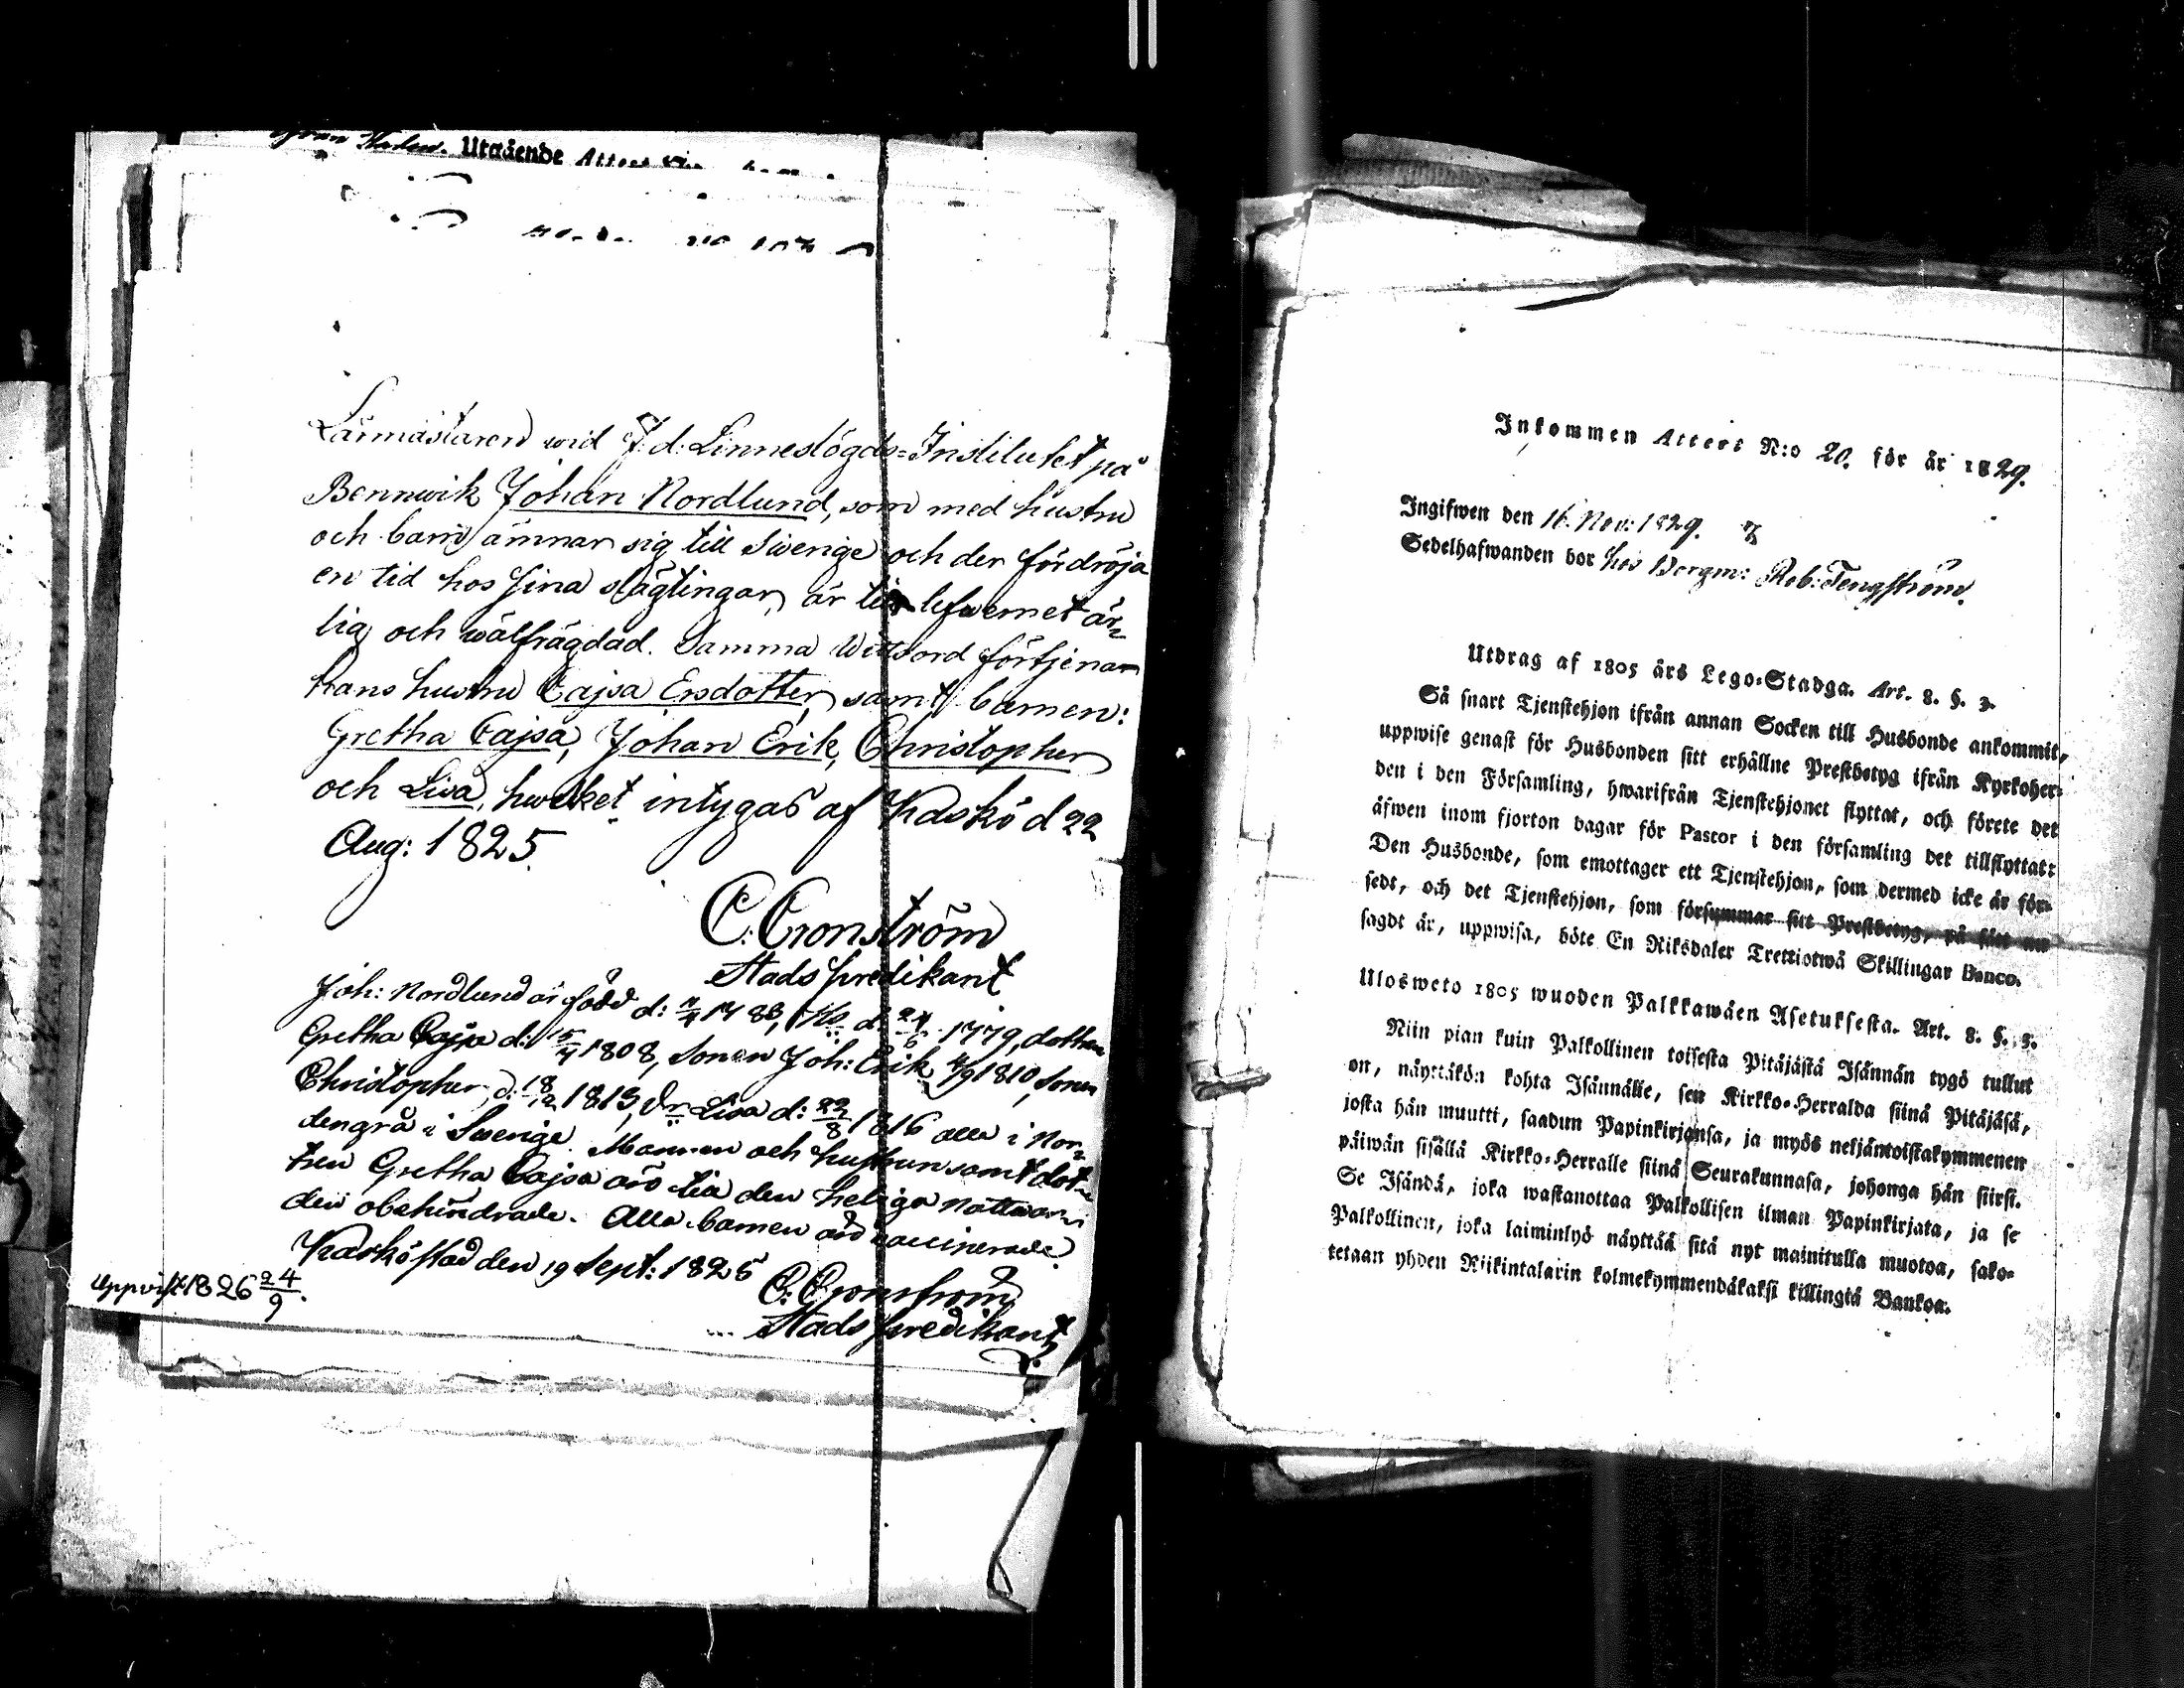 Utgående Attest
Lärmästaren wid F. d. Linneslögds-Institutet på
Bennwik Johan Nordlund, som med hustru
och barn ämnar sig till Swerige och der fördröja
en tid hos sina slägtingar, är till lefwernet är-
lig och wälfrägdad. Samma Wittsord förtjenar
hans hustru Cajsa Ersdotter, samt barnen:
Gretha Cajsa, Johan Erik, Christopher
och Lisa, hwilket intygas af Kaskö d 22
Aug: 1825.
C. Cronström
Stadspredikant
Joh: Nordlund är född d: 1783, d: 1779, dottren
Gretha Cajsa d: 15/4 1808, Sonen Joh: Erik 4/9 1810, Sonen
Christopher, d: 18/12 1813, Dr Lisa d: 22/8 1816 alla i Nor-
dengrå i Swerige. Mannen och hustrun samt dot-
tren Gretha Cajsa äro till den heliga nattwar-
den obehindrade. Alla barnen äro vaccinerade.
Kaskö stad den 19 Sept: 1825
C: Cronström
Stadspredikant
Uppvist 1826 24/9.
Inkommen Attest N:o 20. för år 1829.
Ingifwen den 16. Nov: 1829.
Sedelhafwanden bor hos Borgm: Rob: Tengström.
Utdrag af 1805 års Lego-Stadga. Art. 8. §. 3.
Så snart Tjenstehjon ifrån annan Socken till Husbonde ankommit,
uppwise genast för Husbonden sitt erhållne Prestbetyg ifrån Kyrkoher-
den i den Församling, hwarifrån Tjenstehjonet flyttat, och förete det
äfwen inom fjorton dagar för Pastor i den församling det tillflyttat:
Den Husbonde, som emottager ett Tjenstehjon, som dermed icke är för-
sedt, och det Tjenstehjon, som försummar sitt Prestbetyg, på sätt nu
sagdt är, uppwisa, böte En Riksdaler Trettiotwå Skillingar Banco.
Ulosweto 1805 wuoden Palkkawäen Asetuksesta. Art. 8. §. 3.
Niin pian kuin Palkollinen toisesta Pitäjästä Isännän tygö tullut
on, näyttäkön kohta Isännälle, sen Kirkko-Herralda siinä Pitäjäsä,
josta hän muutti, saadun Papinkirjansa, ja myös neljäntoistakymmenen
päiwän sisällä Kirkko-Herralle siinä Seurakunnasa, johonga hän siirsi.
Se Isändä, joka wastanottaa Palkollisen ilman Papinkirjata, ja se
Palkollinen, joka laiminlyö näyttää sitä nyt mainitulla muotoa, sako-
tetaan yhden Riikintalarin kolmekymmendäkaksi killingiä Bankoa.